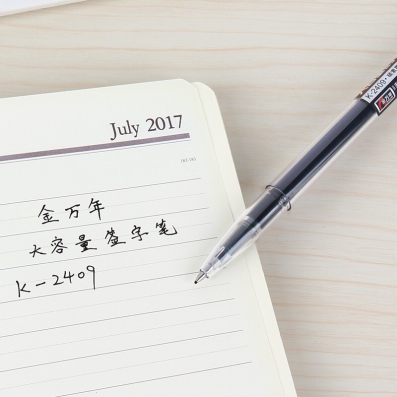 July 2017
金万年
大容量签字笔
K-2409
K-2409